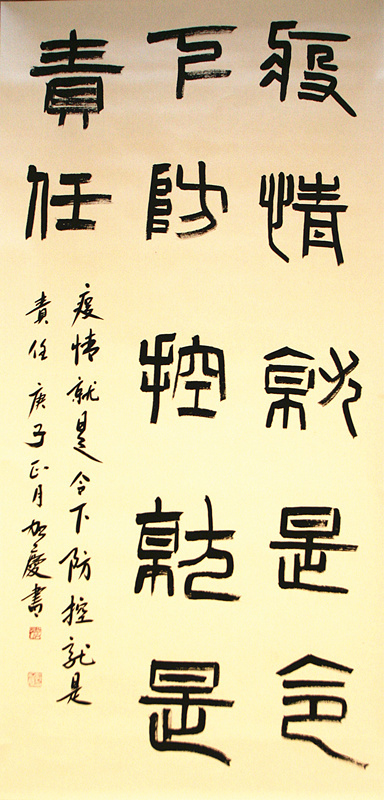 疫情就是令
下防控就是
責任
疫情就是令下防控就是
責任庚子正月加慶書